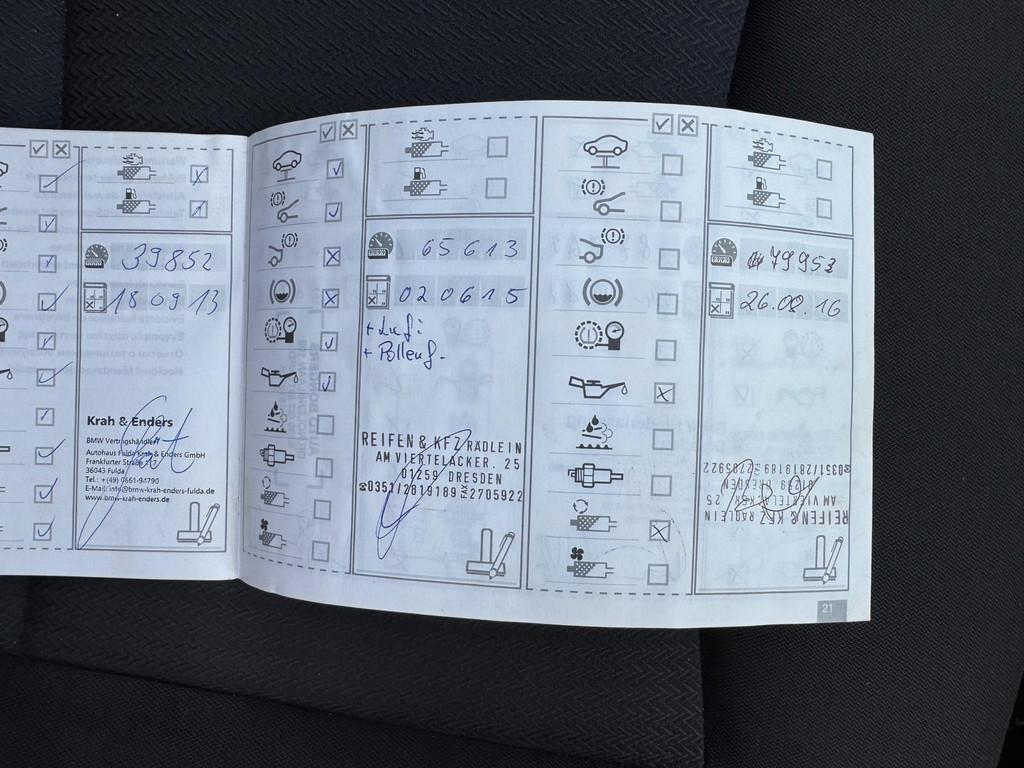 39852
18 09 13
Krah & Enders
BMW Vertragshändler
Autohaus Fulda Krah & Enders GmbH
Frankfurter Straße
36043 Fulda
Tel.: +(49) 0661-94790
E-Mail: info@bmw-krah-enders-fulda.de
www.bmw-krah-enders.de
65613
020615
+ Luf:
+ Pollenf.
REIFEN & KFZ RÄDLEIN
AM VIERTELACKER. 25
01259 DRESDEN
☎0351/2819189 2705922
79953
26.08.16
REIFEN & KFZ RÄDLEIN
AM VIERTELACKER 25
01259 DRESDEN
☎0351/2819189 2705922
21